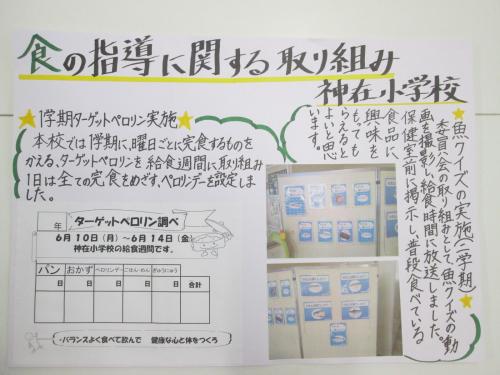 食の指導に関する取り組み
神在小学校
1学期ターゲットペロリン実施
本校では1学期に、曜日ごとに完食するものを
かえる、ターゲットペロリンを給食週間に取り組み
1日は全ての完食をめざす、ペロリンデーを設定しま
した。
年 ターゲットペロリン調べ
6月10日(月)～6月14日(金)
神在小学校の給食週間です。
パン おかず ペロリンデー ごはん・めん ぎゅうにゅう 合計
日 日 日 日 日
・バランスよく食べて飲んで 健康な心と体をつくろ
魚クイズの実施(二学期)
委員会の取り組みとして、魚クイズの動
画を撮影し給食時間に放送しました。
保健室前に掲示し、普段食べている
食品に、
興味を
もっても
らえると
よいと思
います。